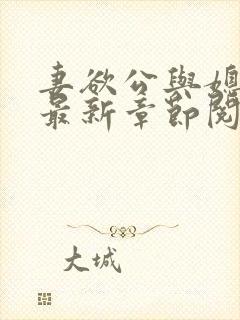 妻欲公與媳
最新章節閱
大城